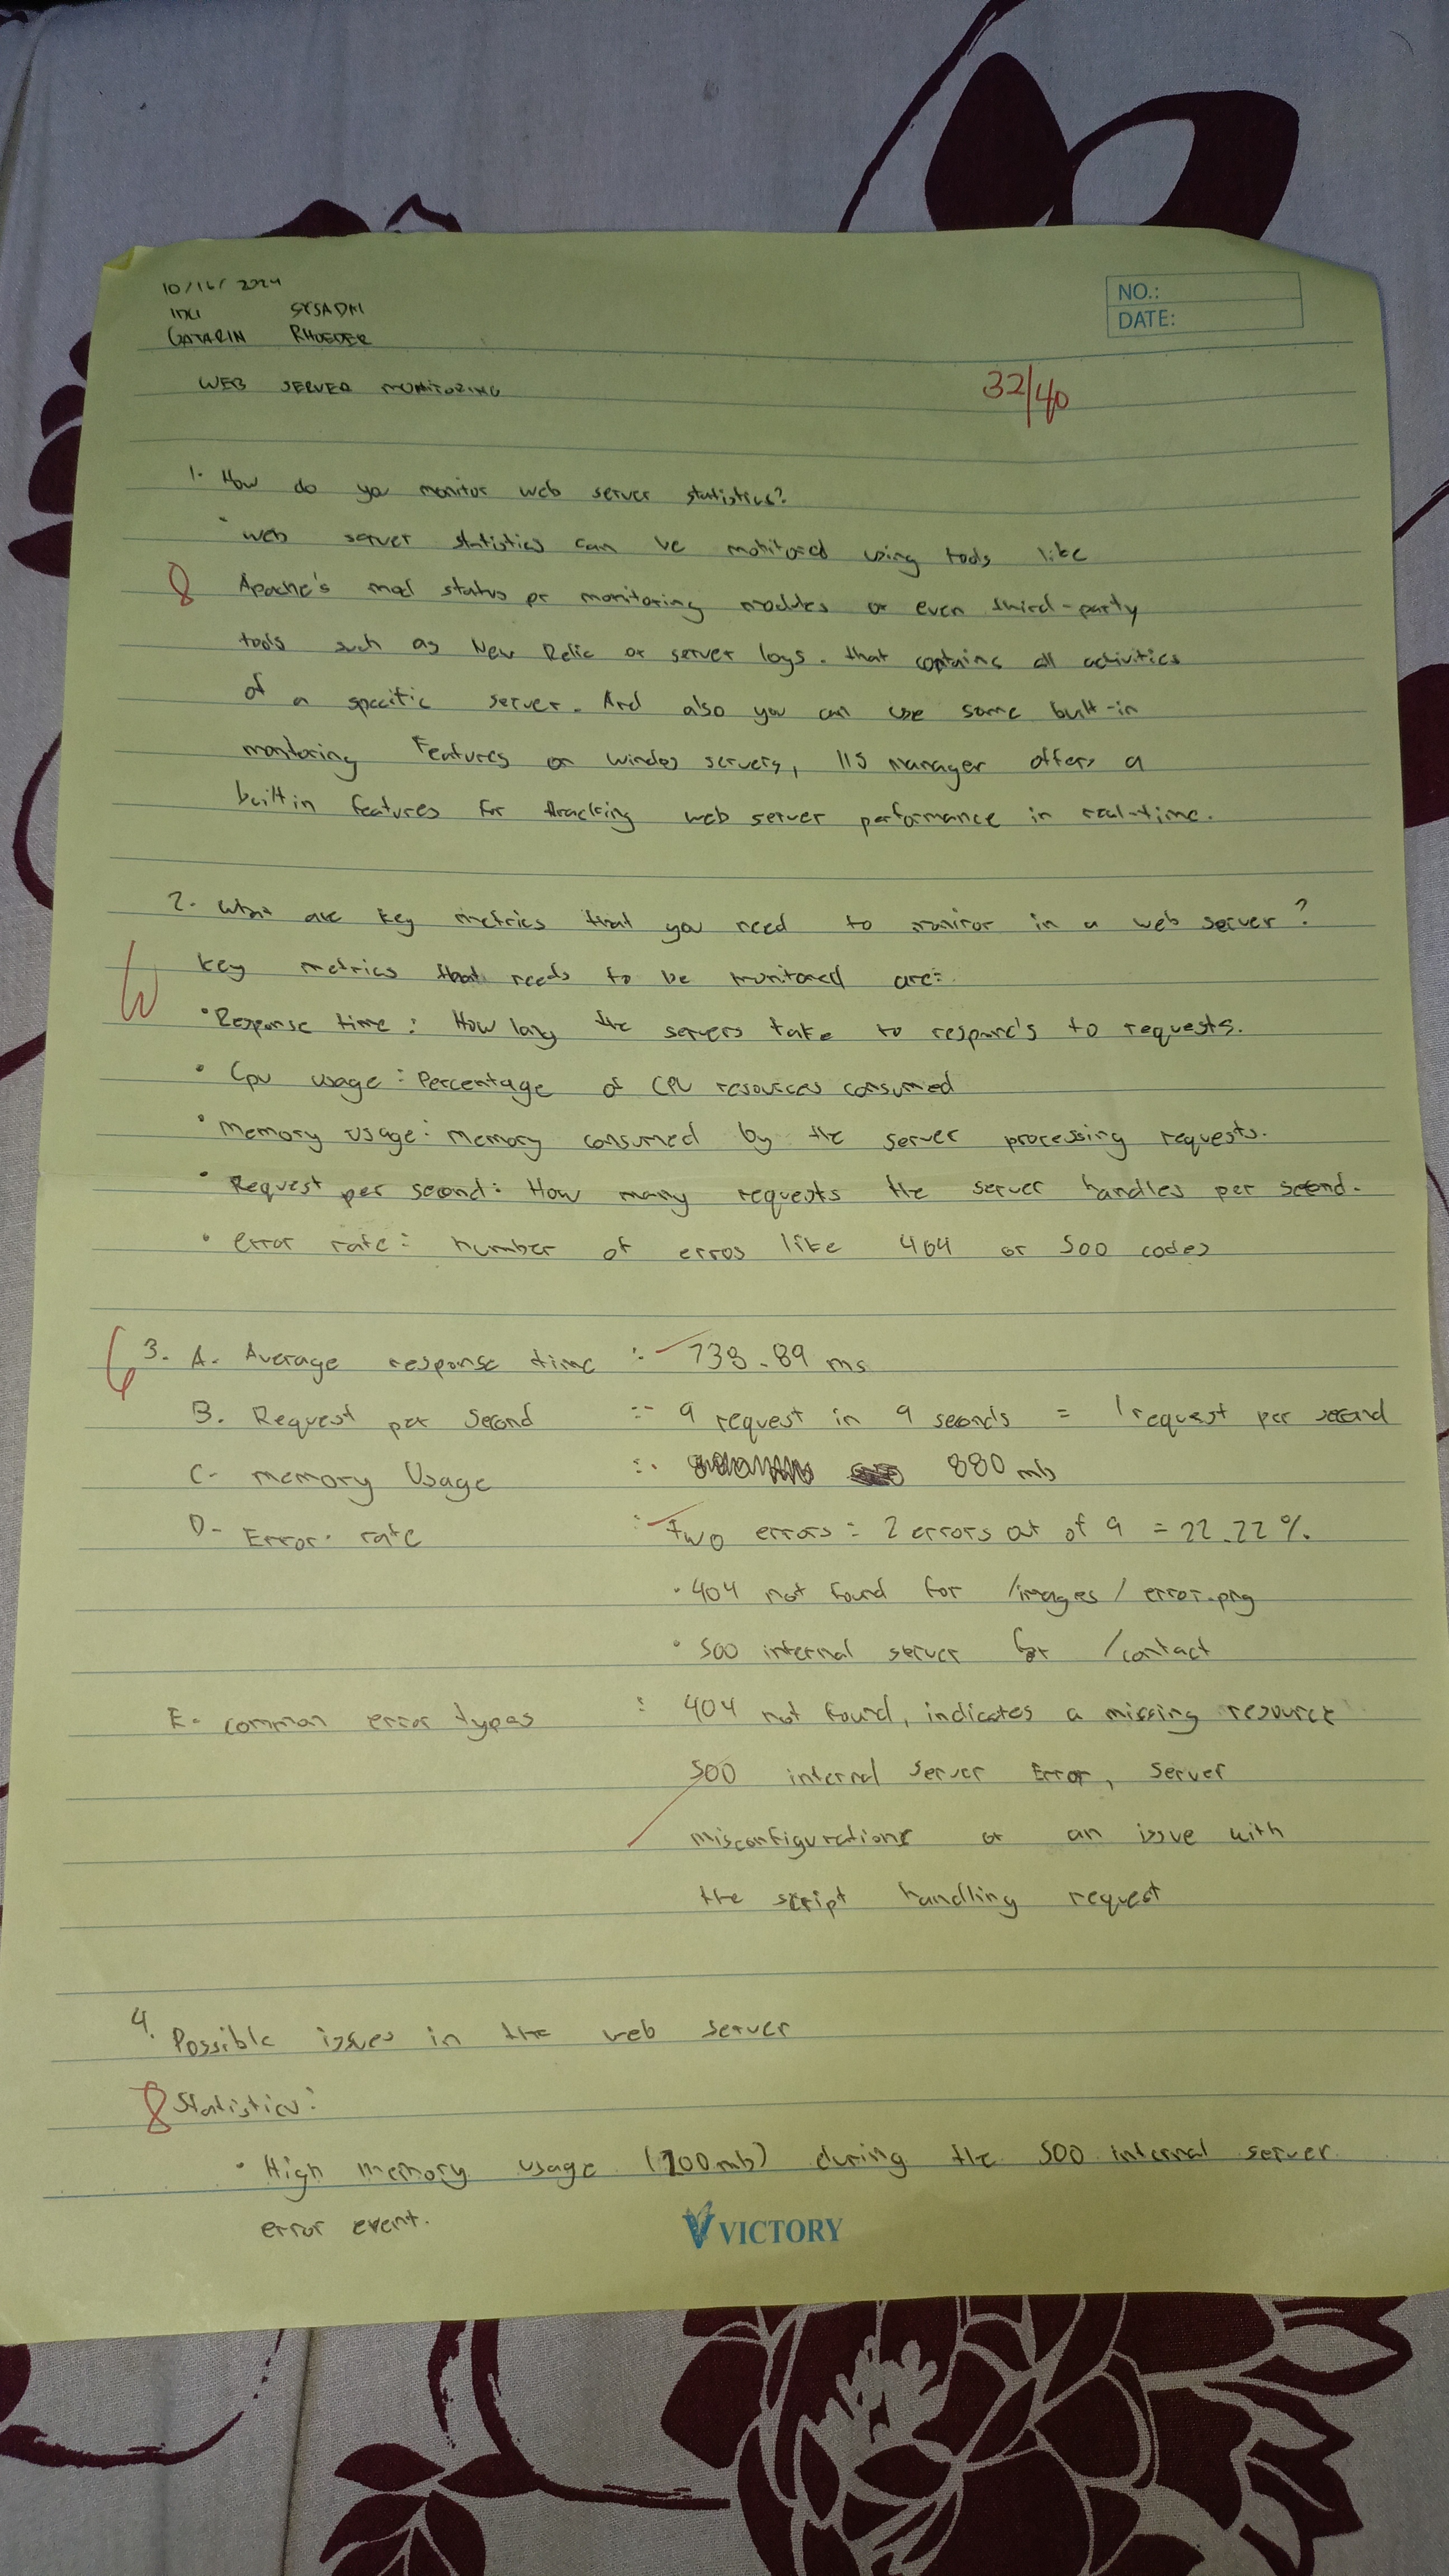 10/16/2024
SYSADM
GATARIN RHOEDER
NO.:
DATE:
WEB SERVER MONITORING
32/40
1. How do you monitor web server statistics?
• web server statistics can be monitored using tools like
8 Apache's mod status or monitoring modules or even third-party
tools such as New Relic or server logs. that contains all activities
of a specific server. And also you can use some built-in
monitoring Features on windos servers, IIS manager offers a
built in features for tracking web server performance in real-time.
2. What are key metrics that you need to monitor in a web server?
10 Key metrics that needs to be monitored are:
• Response time: How long the servers take to respond's to requests.
• Cpu usage: Percentage of CPU resources consumed
• Memory usage: memory consumed by the server processing requests.
• Request per second: How many requests the server handles per second.
• error rate: number of erros like 404 or 500 codes
6 3. A. Average response time : 738.89 ms
B. Request per second : 9 request in 9 seconds = 1 request per second
C- memory Usage : 880 mb
D- Error rate : Two errors = 2 errors out of 9 = 22.22%
• 404 not found for /images/error.png
• 500 internal server for /contact
E- common error types : 404 not found, indicates a missing resource
500 internal server Error, server
misconfigurations or an issue with
the script handling request
4. Possible issues in the web server
8 Statistics:
• High memory usage (700mb) during the 500 internal server
error event.
VICTORY